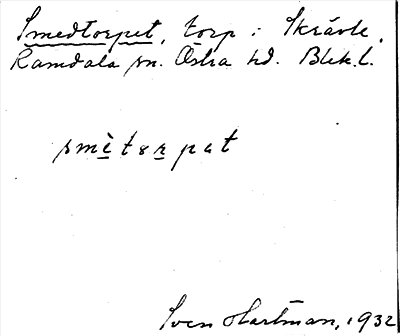 Smedtorpet, torp i Skrävle,
Ramdala sn. Östra hd. Blek. l.
smètorpat
Sven Hartman, 1932